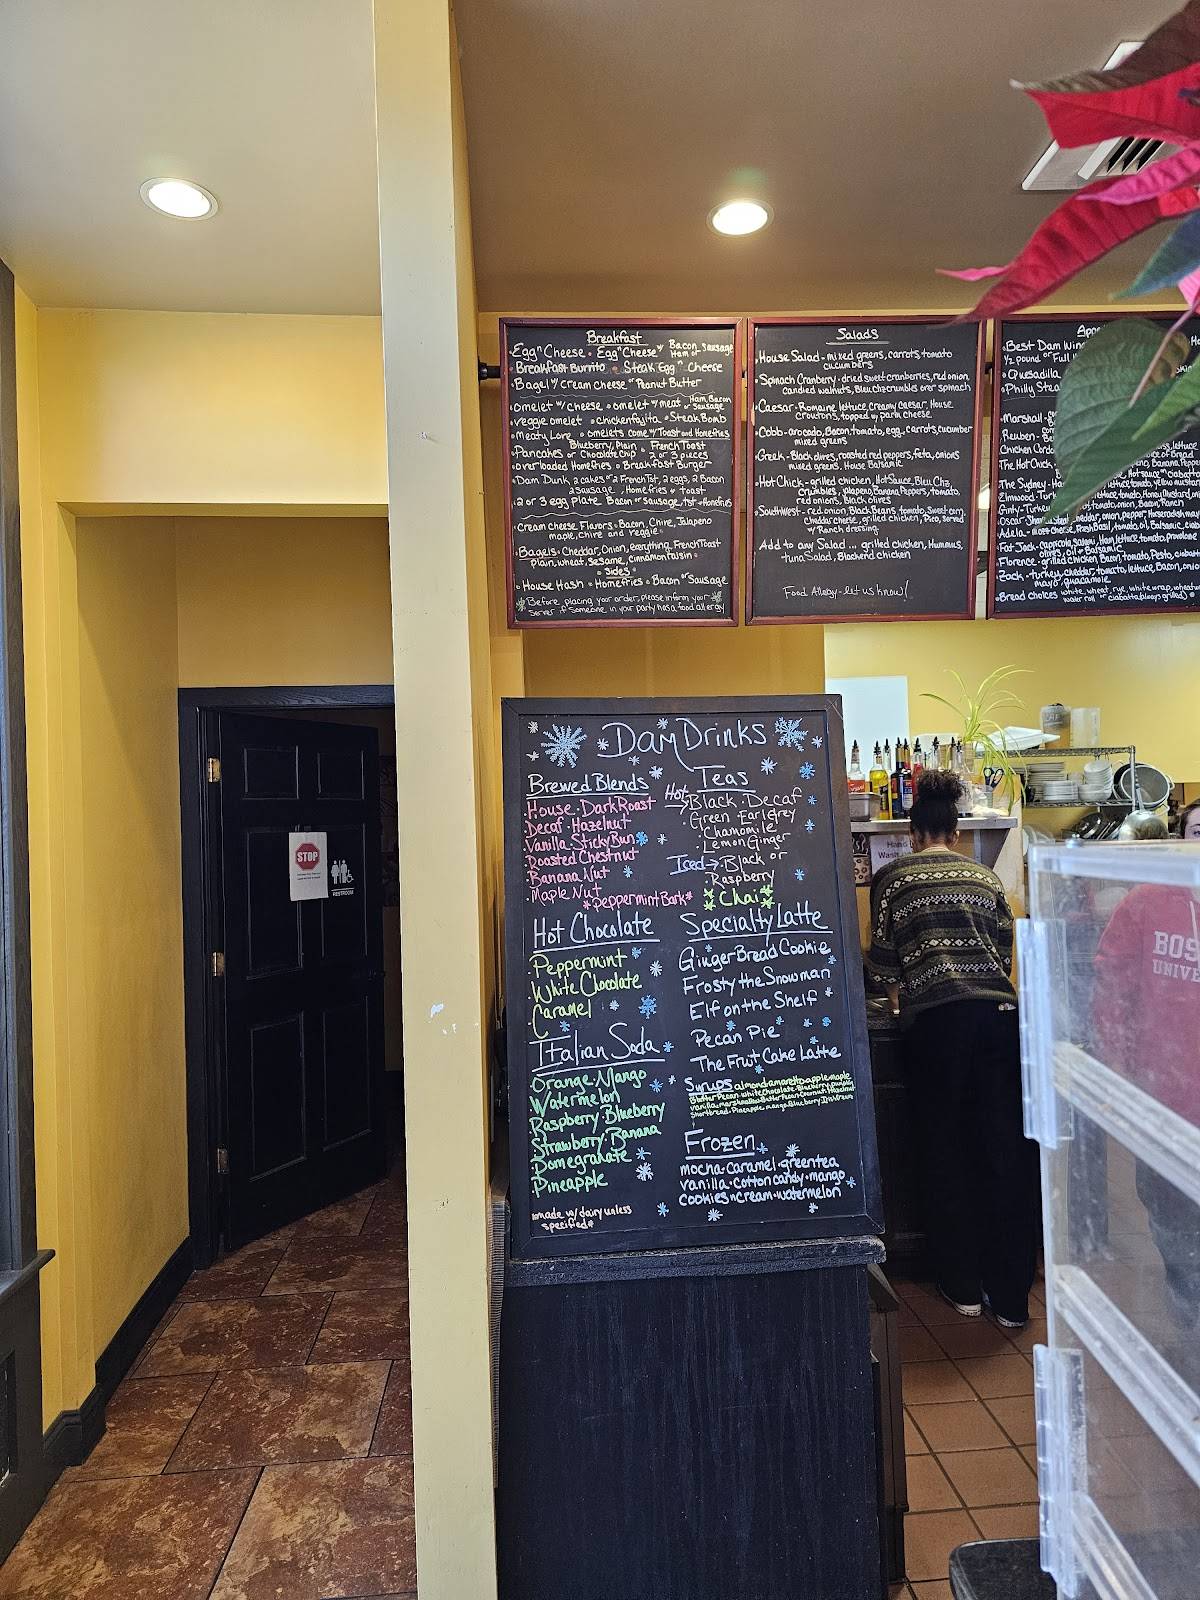 Breakfast
Egg n Cheese • Egg n Cheese w/ Bacon, Sausage Ham or
• Breakfast Burrito • Steak Egg n Cheese
• Bagel w/ cream cheese or Peanut Butter
omelet w/ cheese • omelet w/ meat Ham, Bacon or Sausage
veggie omelet • chicken fajita • Steak Bomb
• Meaty Lore • omelets come w/ Toast and Homefries
• Pancakes Blueberry, Plain or Chocolate chip • French Toast 2 or 3 pieces
• overloaded Homefries • Breakfast Burger
• Dam Dunk, 2 cakes or 2 French Tst, 2 eggs, 2 Bacon
2 Sausage, Homefries & toast
• 2 or 3 egg Plate Bacon or Sausage, tst & Homefries
• Cream cheese Flavors • Bacon, Chive, Jalapeno
maple, chive and veggie •
• Bagels: Cheddar, Onion, everything, French Toast
plain, wheat, sesame, cinnamon raisin •
• Sides •
• House Hash • Homefries • Bacon or Sausage
Before placing your order, please inform your
server if someone in your party has a food allergy
Salads
• House Salad - mixed greens, carrots, tomato
cucumbers
• Spinach Cranberry - dried sweet cranberries, red onion
candied walnuts, Bleu Chz crumbles over spinach
• Caesar - Romaine lettuce, creamy caesar, House
croutons, topped w/ parm cheese
• Cobb - avocado, Bacon, tomato, egg, carrots, cucumber
mixed greens
• Greek - Black olives, roasted red peppers, feta, onions
mixed greens. House Balsamic
• Hot Chick - grilled chicken, Hot Sauce, Bleu Chz
crumbles, jalapeno, Banana Peppers, tomato,
red onions, Black olives
• Southwest - red onion, Black Beans, tomato, Sweet corn,
cheddar cheese, grilled chicken, Pico, served
w/ Ranch dressing
Add to any Salad ... grilled chicken, Hummus,
tuna Salad, Blackend chicken
Food Allergy - let us know!
App
• Best Dam Wing
1/2 pound or Full
• Quesadilla
• Philly Stea
Marshall -
Reuben -
Chicken Cordo
The Hot Chick
The Sydney - Ha
Elmwood - Turk
Ginty - Turke
Oscar
Adela
Fat Jack - capricola, salami, Ham, lettuce, tomato, provolone
olives, oil & Balsamic
Florence - grilled chicken, Bacon, tomato, Pesto, ciabatta
Zack - turkey, cheddar, tomato, lettuce, Bacon, onio
mayo, guacamole
• Bread choices white, wheat, rye, white wrap, wheat
Dam Drinks
Brewed Blends
• House • Dark Roast
• Decaf • Hazelnut
• Vanilla • Sticky Bun
• Roasted Chestnut
• Banana Nut
• Maple Nut
*Peppermint Bark*
Teas
Hot → Black • Decaf
• Green • Earl Grey
• Chamomile
• Lemon Ginger
Iced → • Black or
• Raspberry
Chai
Hot Chocolate
• Peppermint
• White Chocolate
• Caramel
Specialty Latte
Ginger Bread Cookie
Frosty the Snowman
Elf on the Shelf
Pecan Pie
The Fruit Cake Latte
Italian Soda
• Orange • Mango
• Watermelon
• Raspberry • Blueberry
• Strawberry • Banana
• Pomegranate
• Pineapple
*made w/ dairy unless
specified*
Syrups almond • amaretto • apple • maple
Butter Pecan • white chocolate • Blueberry • pumpkin
Frozen
mocha • caramel • green tea
vanilla • cotton candy • mango
cookies n cream • watermelon
STOP
RESTROOM
Hand
Wash
BOS
UNIV